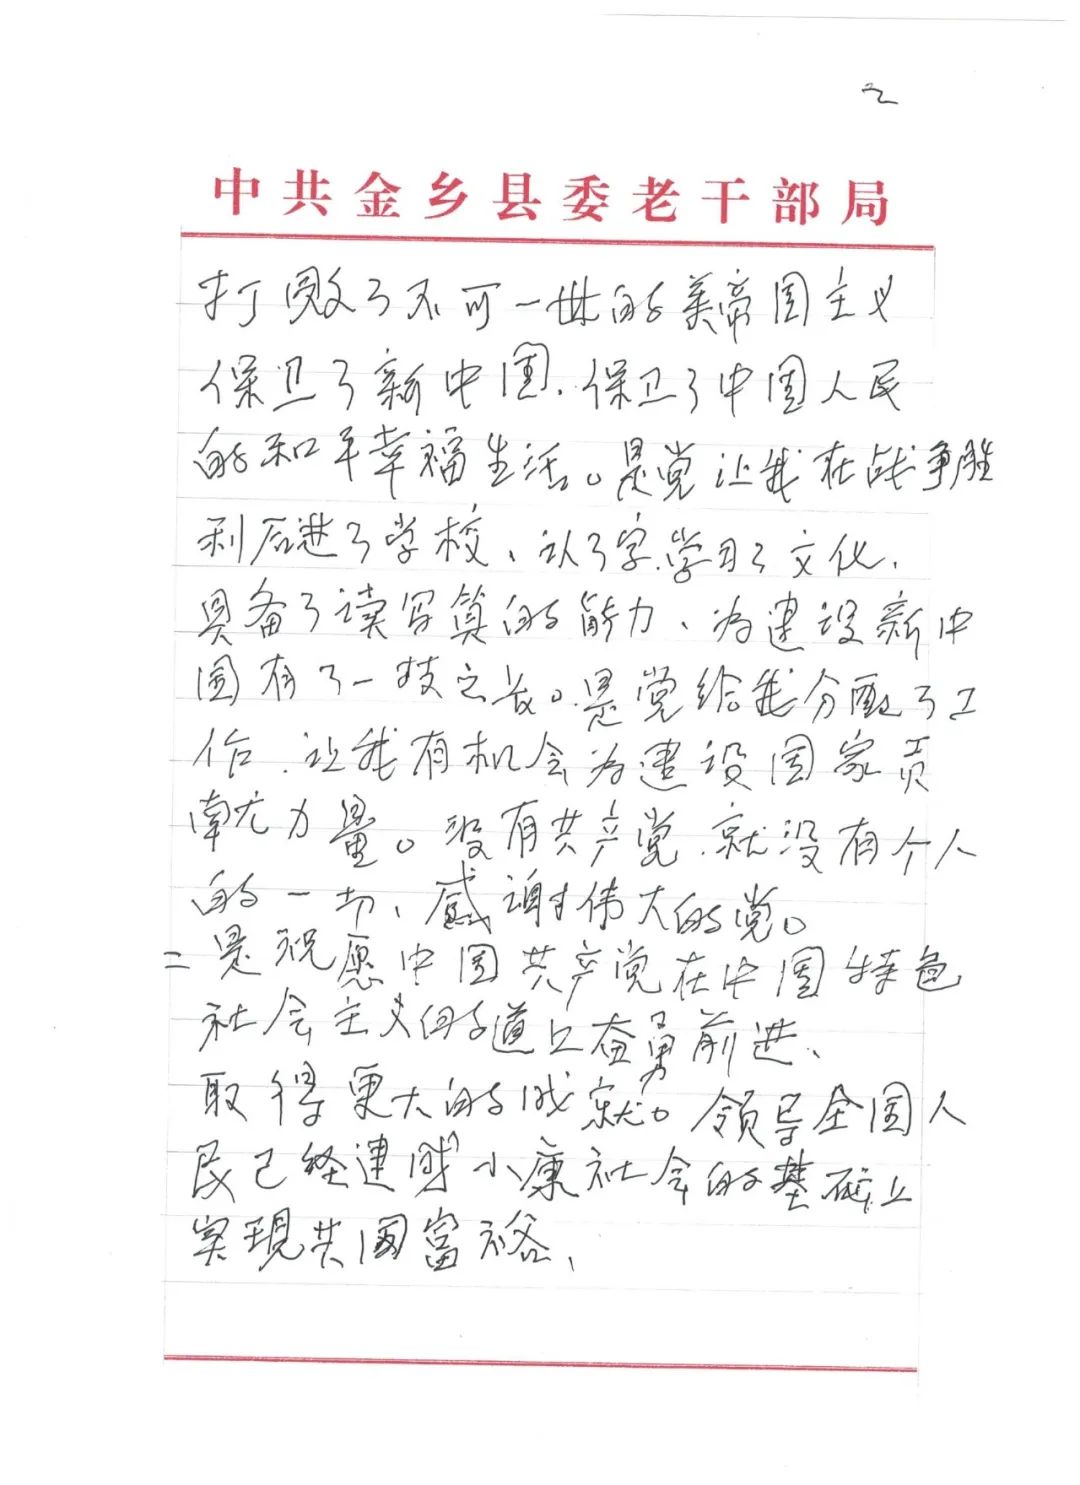 二
中共金乡县委老干部局
打败了不可一世的美帝国主义
保卫了新中国.保卫了中国人民
的和平幸福生活。是党让我在战争胜
利后进了学校、认了字.学习了文化.
具备了读写算的能力、为建设新中
国有了一技之长。是党给我分配了工
作.让我有机会为建设国家贡
献力量。没有共产党.就没有个人
的一切、感谢伟大的党。
二是祝愿中国共产党在中国特色
社会主义的道上奋勇前进、
取得更大的成就。领导全国人
民已经建成小康社会的基础上
实现共同富裕、